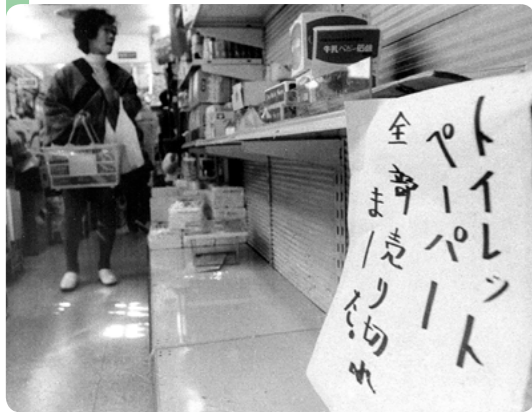 トイレット
ペーパー
全部売り切れ
ました。